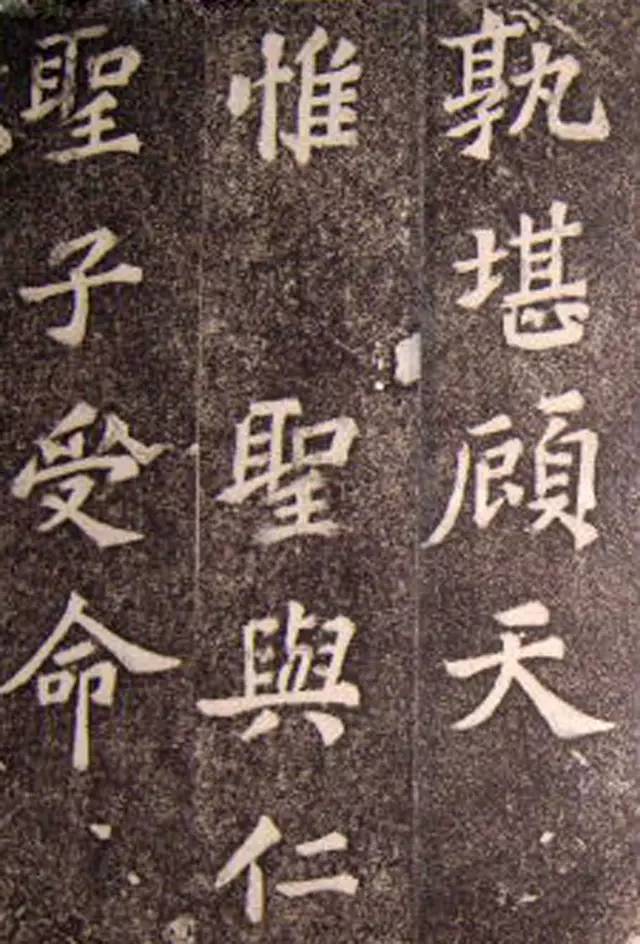 孰堪顧天
惟 聖與仁
聖子受命